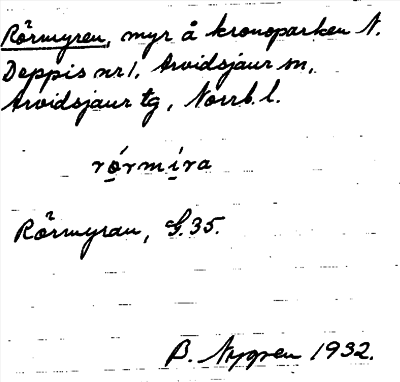 Rörmyren, myr å kronoparken N.
Deppis nr 1, Arvidsjaur sn,
Arvidsjaur tg, Norrb. l.
rǫ́rmi̱̇ra
Rörmyran, G. 35.
B. Nygren 1932.